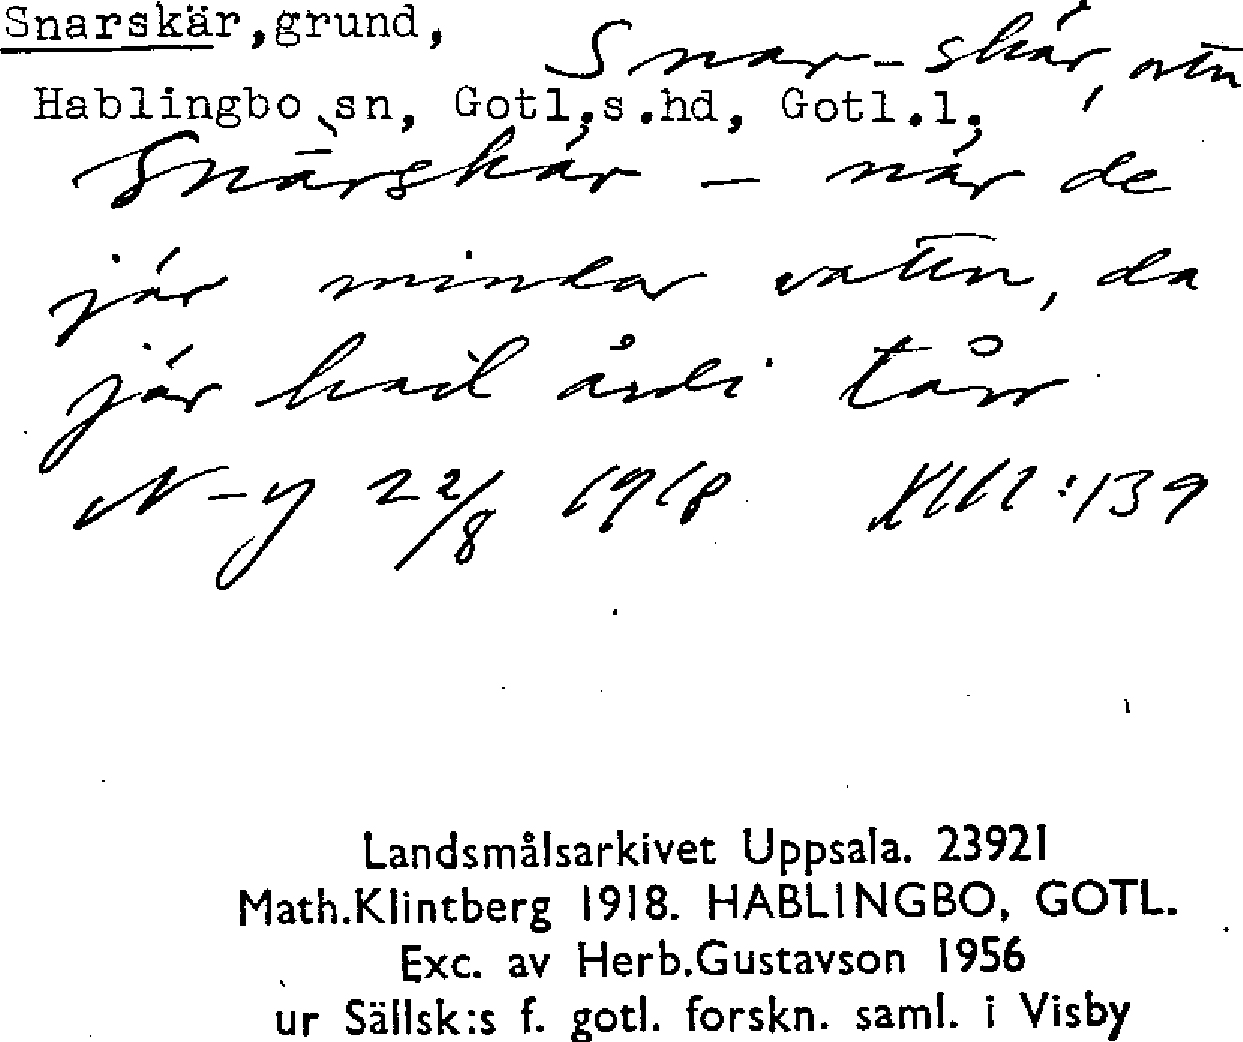 Snarskär,grund,
Snar-skär,
Hablingbo sn, Gotl.s.hd, Gotl.l.
Snārskär - när de
jär mindar vattn, da
jär hail årdi tårr
N-y 22/8 1918 XLII:139
Landsmålsarkivet Uppsala. 23921
Math.Klintberg 1918. HABLINGBO, GOTL.
Exc. av Herb.Gustavson 1956
ur Sällsk:s f. gotl. forskn. saml. i Visby